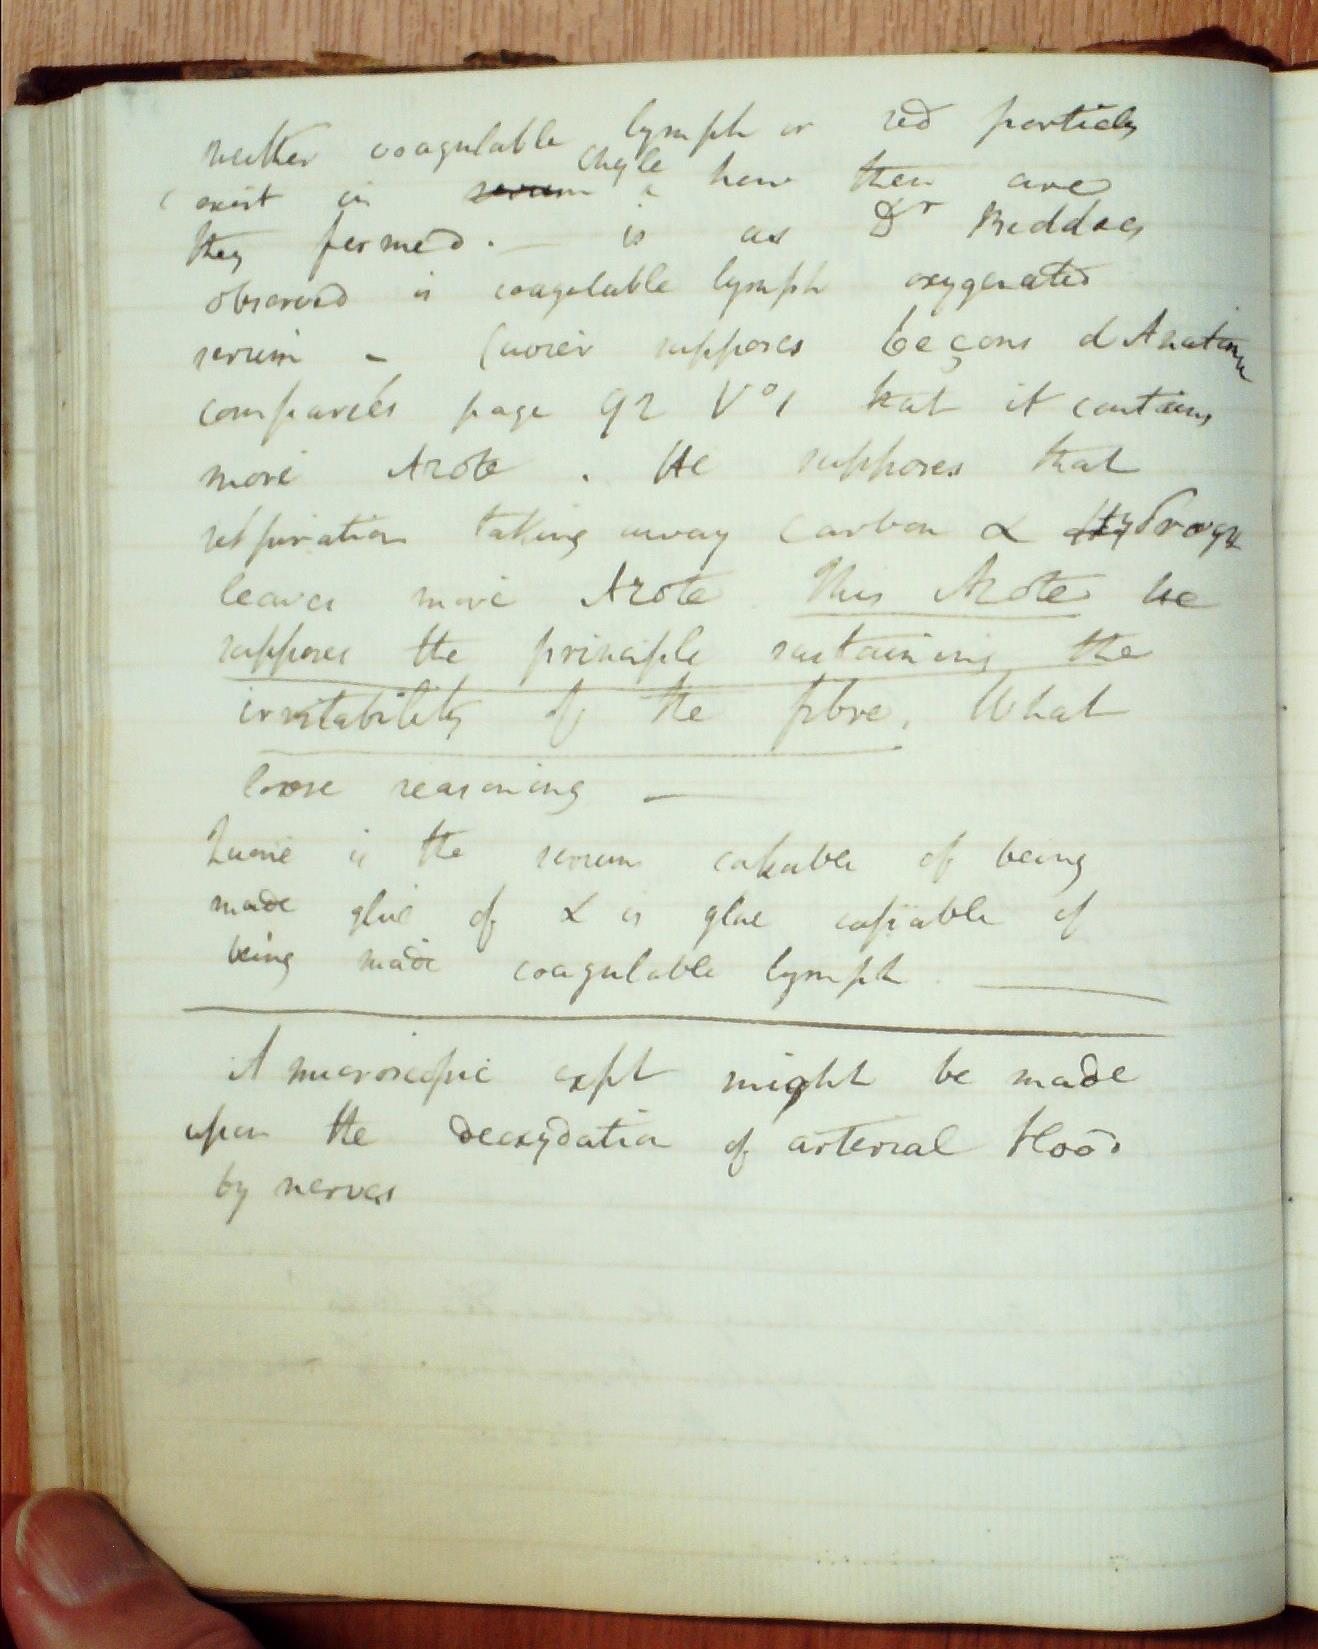 neither coagulable lymph or red particles
exist in serum Chyle how then are
they formed. — is as Dr Beddoes
observed is coagulable lymph oxygenated
serum - Cuvier supposes Leçons d Anatomie
comparées page 92 Vol 1 that it contains
more Azote. He supposes that
respiration taking away Carbon & Hydrogen
leaves more Azote This Azote he
supposes the principle sustaining the
irritability of the fibre. What
loose reasoning —
is the serum capable of being
made glue of & is glue capable of
being made coagulable lymph —
A microscopic expt might be made
upon the deoxydation of arterial blood
by nerves